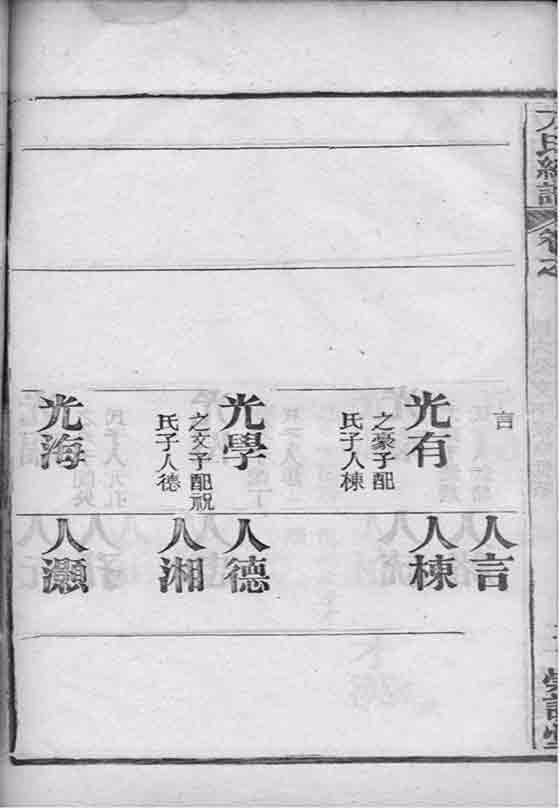 言
光有
之豪子配
氏子人棟
光學
之文子配祝
氏子人德
光海
人言
人棟
人德
人湘
人灝